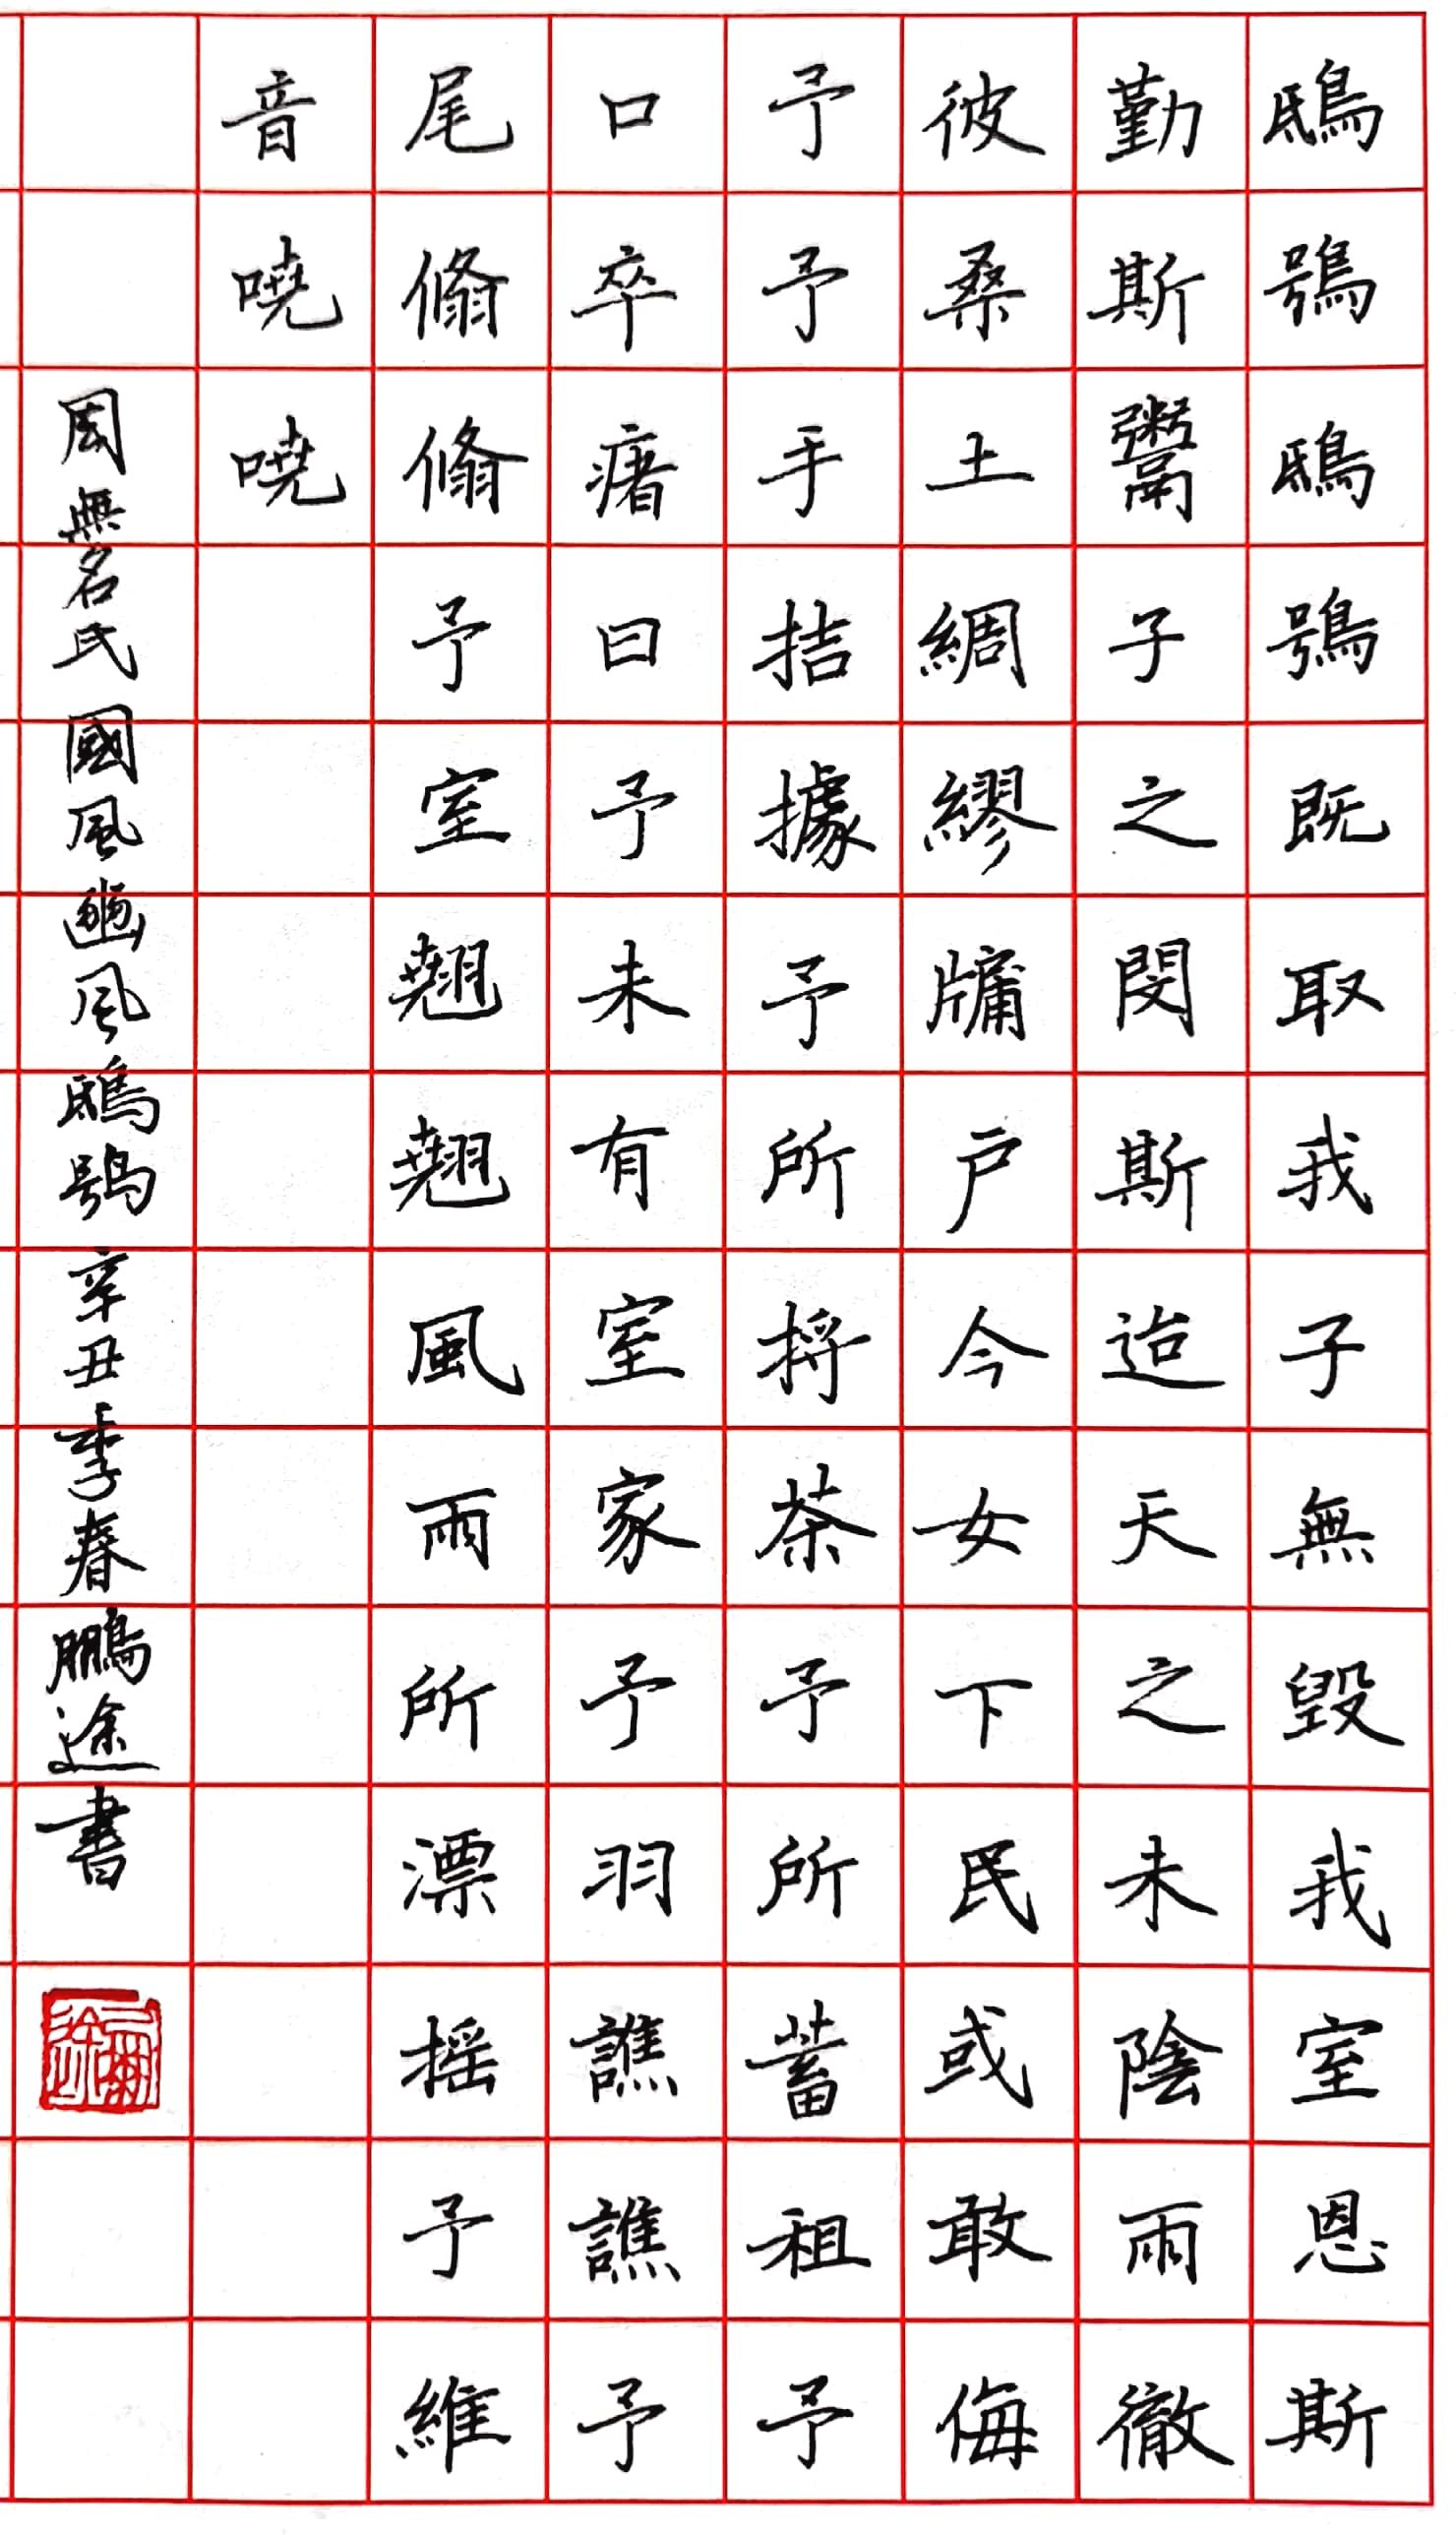 鴟鴞鴟鴞既取我子無毀我室恩斯
勤斯鬻子之閔斯迨天之未陰雨徹
彼桑土綢繆牖戶今女下民或敢侮
予予手拮據予所捋荼予所蓄租予
口卒瘏曰予未有室家予羽譙譙予
尾翛翛予室翹翹風雨所漂摇予維
音嘵嘵
周無名氏國風豳風鴟鴞辛丑季春鵬途書